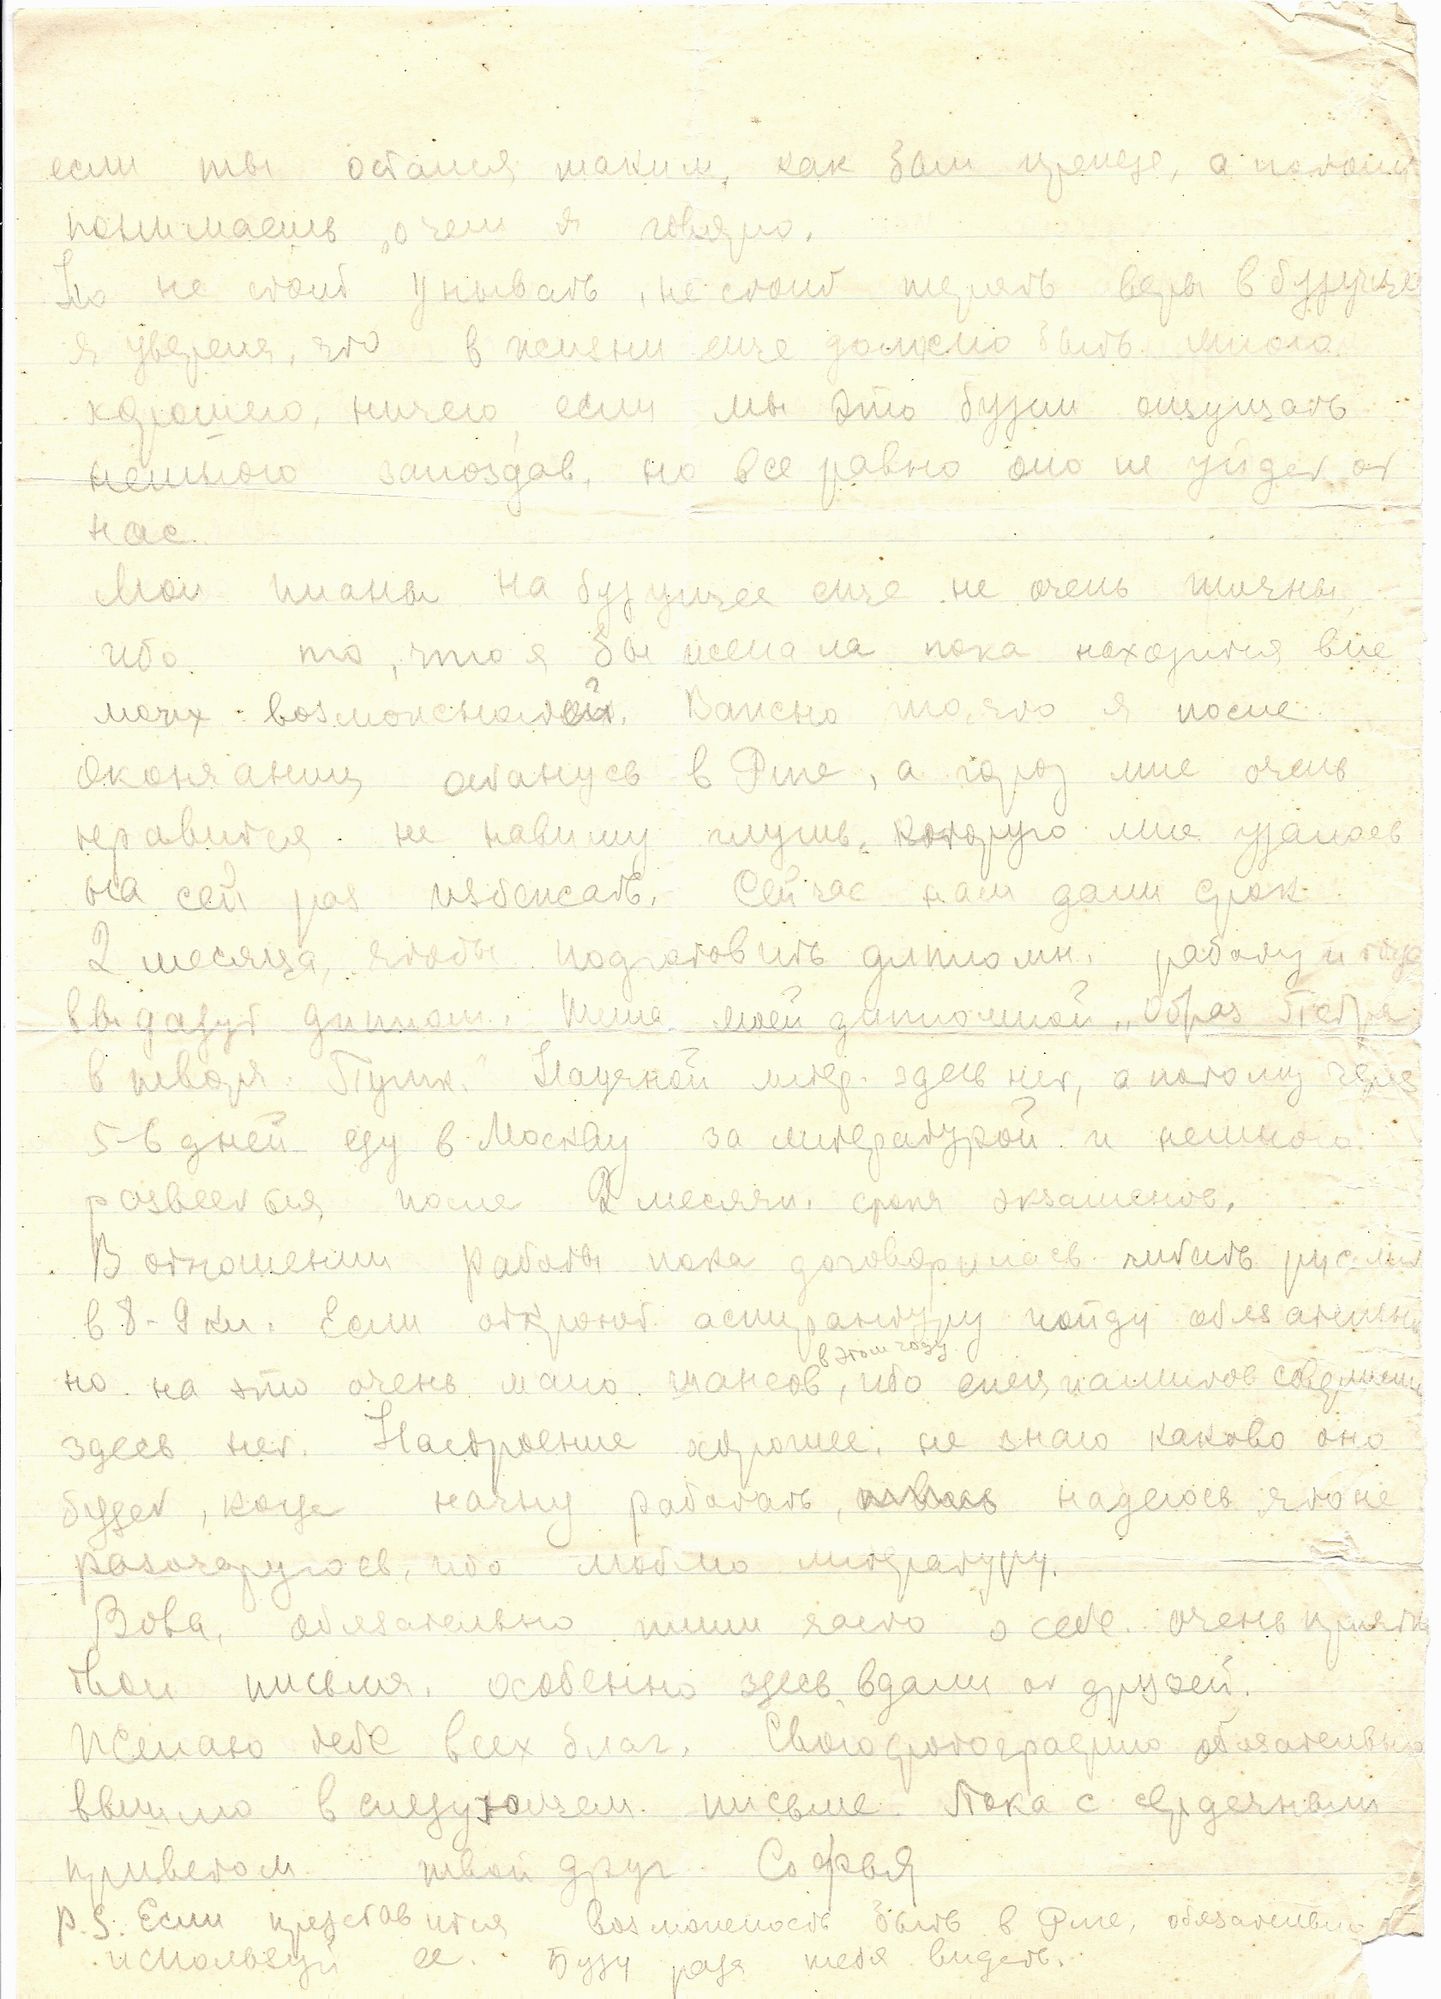 если ты остался таким, как был прежде, а потому
понимаешь о чем я говорю.
Но не стоит унывать, не стоит терять веры в будущее
я уверена, что в жизни еще должно быть много
хорошего, ничего если мы это будем ощущать
немного запоздав, но все равно оно не уйдет от
нас.
Мои планы на будущее еще не очень
ибо то, что я бы желала пока находится вне
моих возможностей. Важно то, что я после
окончания останусь в Риге, а город мне очень
нравится. не навижу глушь, которую мне удалось
на сей раз избежать. Сейчас нам дали срок
2 месяца, чтобы подготовить дипломн. работу и тогда
выдадут диплом. Тема моей дипломной „Образ Петра
в творч. Пушк." Научной литер. здесь нет, а потому через
5-6 дней еду в Москву за литературой и немного
развеяться после 2 месячн. срока экзаменов.
В отношении работы пока договорилась читать рус. лит
в 8-9 кл. Если откроют аспирантуру пойду обязательно
но на это очень мало шансов в этом году, ибо специалистов
здесь нет. Настроение хорошее, не знаю каково оно
будет, когда начну работать, надеюсь что не
разочаруюсь, ибо люблю литературу.
Вова, обязательно пиши часто о себе. очень приятны
твои письма, особенно здесь вдали от друзей.
Желаю тебе всех благ. Свою фотографию обязательно
вышлю в следующем письме. Пока с сердечным
приветом твой друг Софья
P.S. Если представится возможность быть в Риге, обязательно
используй ее. Буду рада тебя видеть.